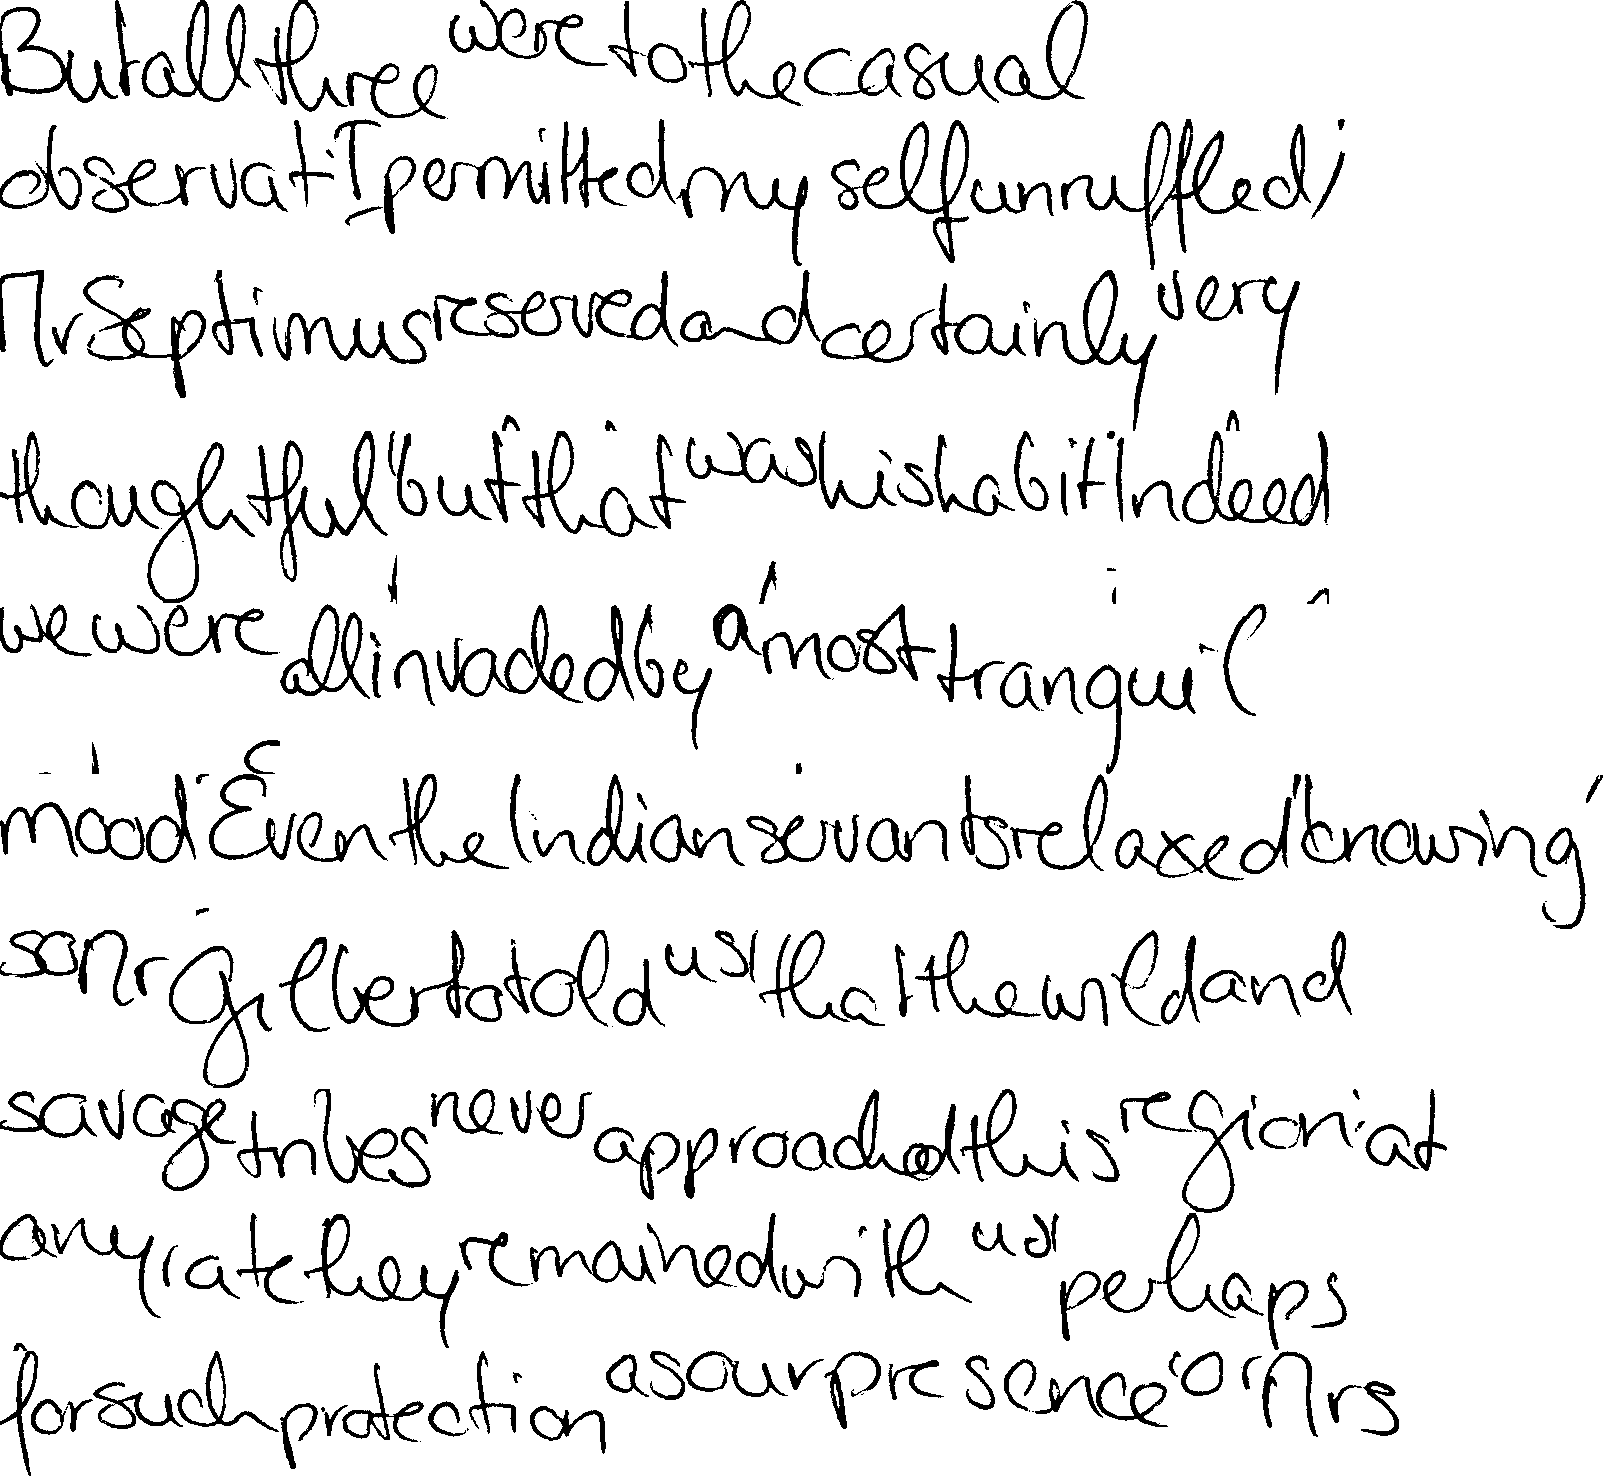 But all three were to the casual
observat I permitted myself unruffled;
Mr Septimus reserved and certainly very
thoughtful but that was his habit Indeed
we were all invaded by a most tranquil
mood Even the Indian servants relaxed knowing
so Mr Gilberto told us that the wild and
savage tribes never approached this region at
any rate they remained with us perhaps
for such protection as our presence or Mrs